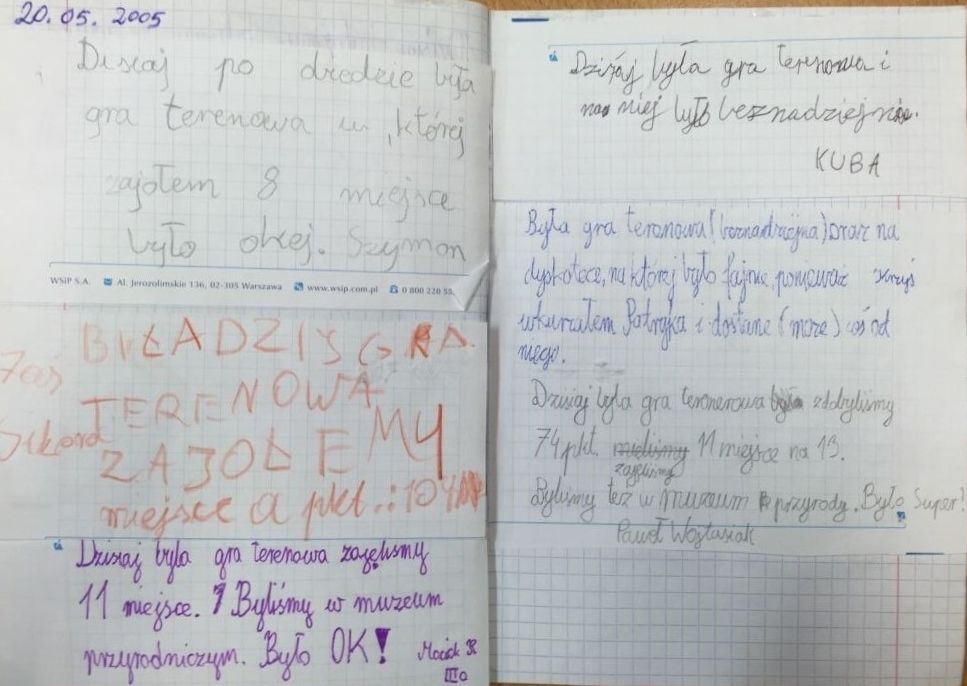 20.05.2005
Dzisiaj po obiedzie była
gra terenowa w której
zajołem 8 miejsce
było okej. Szymon
WSiP S.A. Al. Jerozolimskie 136, 02-305 Warszawa www.wsip.com.pl 0 800 220 55
BYŁA DZIŚ GRA
TERENOWA
ZAJOŁEMY
miejsce a pkt.: 104
Dzisiaj była gra terenowa zajęliśmy
11 miejsce. Byliśmy w muzeum
przyrodniczym. Było OK!
Maciek
III a
Dzisiaj była gra terenowa i
na niej było beznadziejnie.
KUBA
Była gra terenowa (beznadziejna) oraz na
dyskotece, na której było fajnie, ponieważ
wkurzałem Patryka i dostane (może) coś od
niego.
Dzisiaj była gra teronerowa zdobyliśmy
74 pkt. mieliśmy 11 miejsce na 13.
zajeliśmy
Byliśmy też w muzeum przyrody. Było Super!
Paweł Wojtasiak